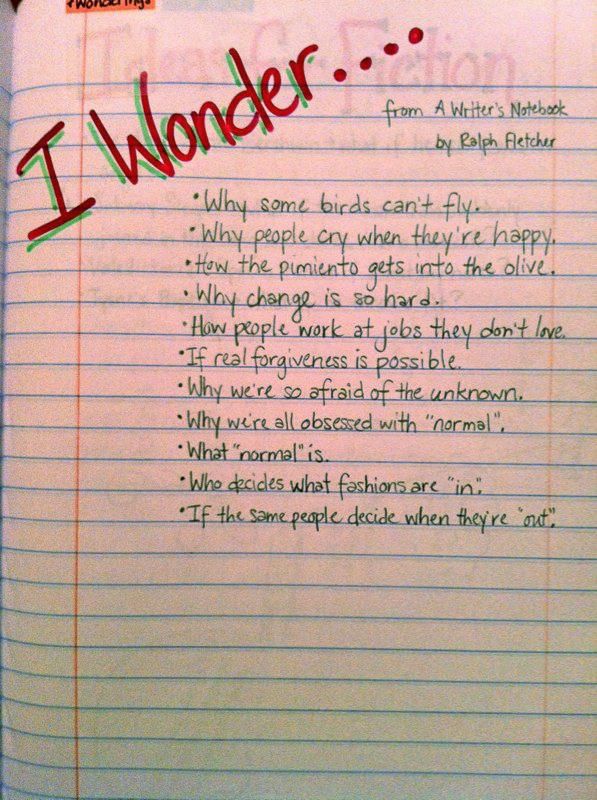 Wonderings
I Wonder....
from A Writer's Notebook
by Ralph Fletcher
• Why some birds can't fly.
• Why people cry when they're happy.
• How the pimiento gets into the olive.
• Why change is so hard.
• How people work at jobs they don't love.
• If real forgiveness is possible.
• Why we're so afraid of the unknown.
• Why we're all obsessed with "normal".
• What "normal" is.
• Who decides what fashions are "in".
• If the same people decide when they're "out".